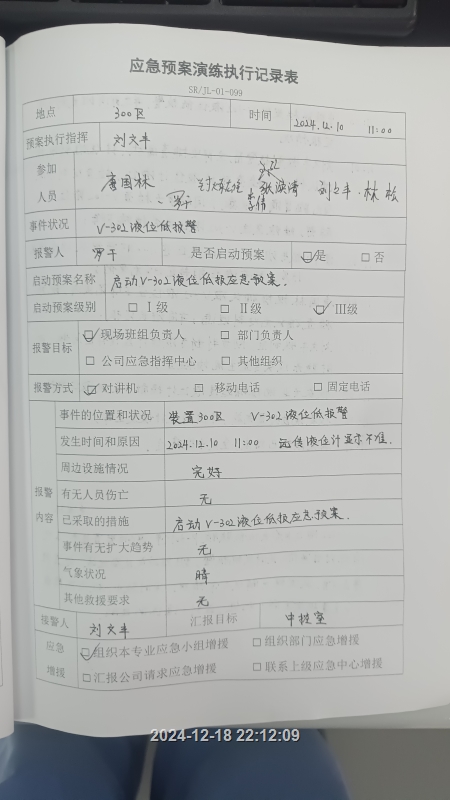 应急预案演练执行记录表
SR/JL-01-099
地点 300区 时间 2024.12.10 11:00
预案执行指挥 刘文丰
参加人员 唐国林 罗干 李倩 刘文丰 林松
事件状况 V-302液位低报警
报警人 罗干 是否启动预案 ☑是 □否
启动预案名称 启动V-302液位低报应急预案.
启动预案级别 □ Ⅰ级 □ Ⅱ级 ☑ Ⅲ级
报警目标 ☑现场班组负责人 □ 部门负责人
□ 公司应急指挥中心 □ 其他组织
报警方式 ☑对讲机 □ 移动电话 □ 固定电话
报警内容
事件的位置和状况 装置300区 V-302液位低报警
发生时间和原因 2024.12.10 11:00 远传液位计显示不准.
周边设施情况 完好
有无人员伤亡 无
已采取的措施 启动V-302液位低报应急预案.
事件有无扩大趋势 无
气象状况 晴
其他救援要求 无
接警人 刘文丰 汇报目标 中控室
应急增援 ☑组织本专业应急小组增援 □组织部门应急增援
□汇报公司请求应急增援 □联系上级应急中心增援
2024-12-18 22:12:09